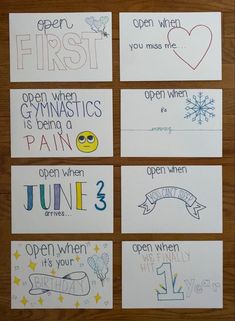 open
FIRST
open when
you miss me...
open when
GYMNASTICS
is being a
PAIN
open when
its
snowing
open when
JUNE 23
arrives...
open when
YOU CAN'T SLEEP
open when
it's your
BIRTHDAY
open when
WE FINALLY
hit 1 Year